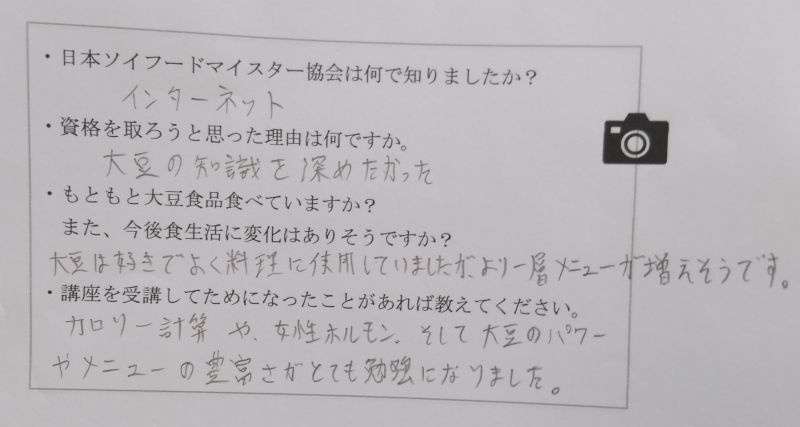 ・日本ソイフードマイスター協会は何で知りましたか？
インターネット
・資格を取ろうと思った理由は何ですか。
大豆の知識を深めたかった
・もともと大豆食品食べていますか？
また、今後食生活に変化はありそうですか？
大豆は好きでよく料理に使用していましたが、より一層メニューが増えそうです。
・講座を受講してためになったことがあれば教えてください。
カロリー計算や、女性ホルモン、そして大豆のパワー
やメニューの豊富さがとても勉強になりました。